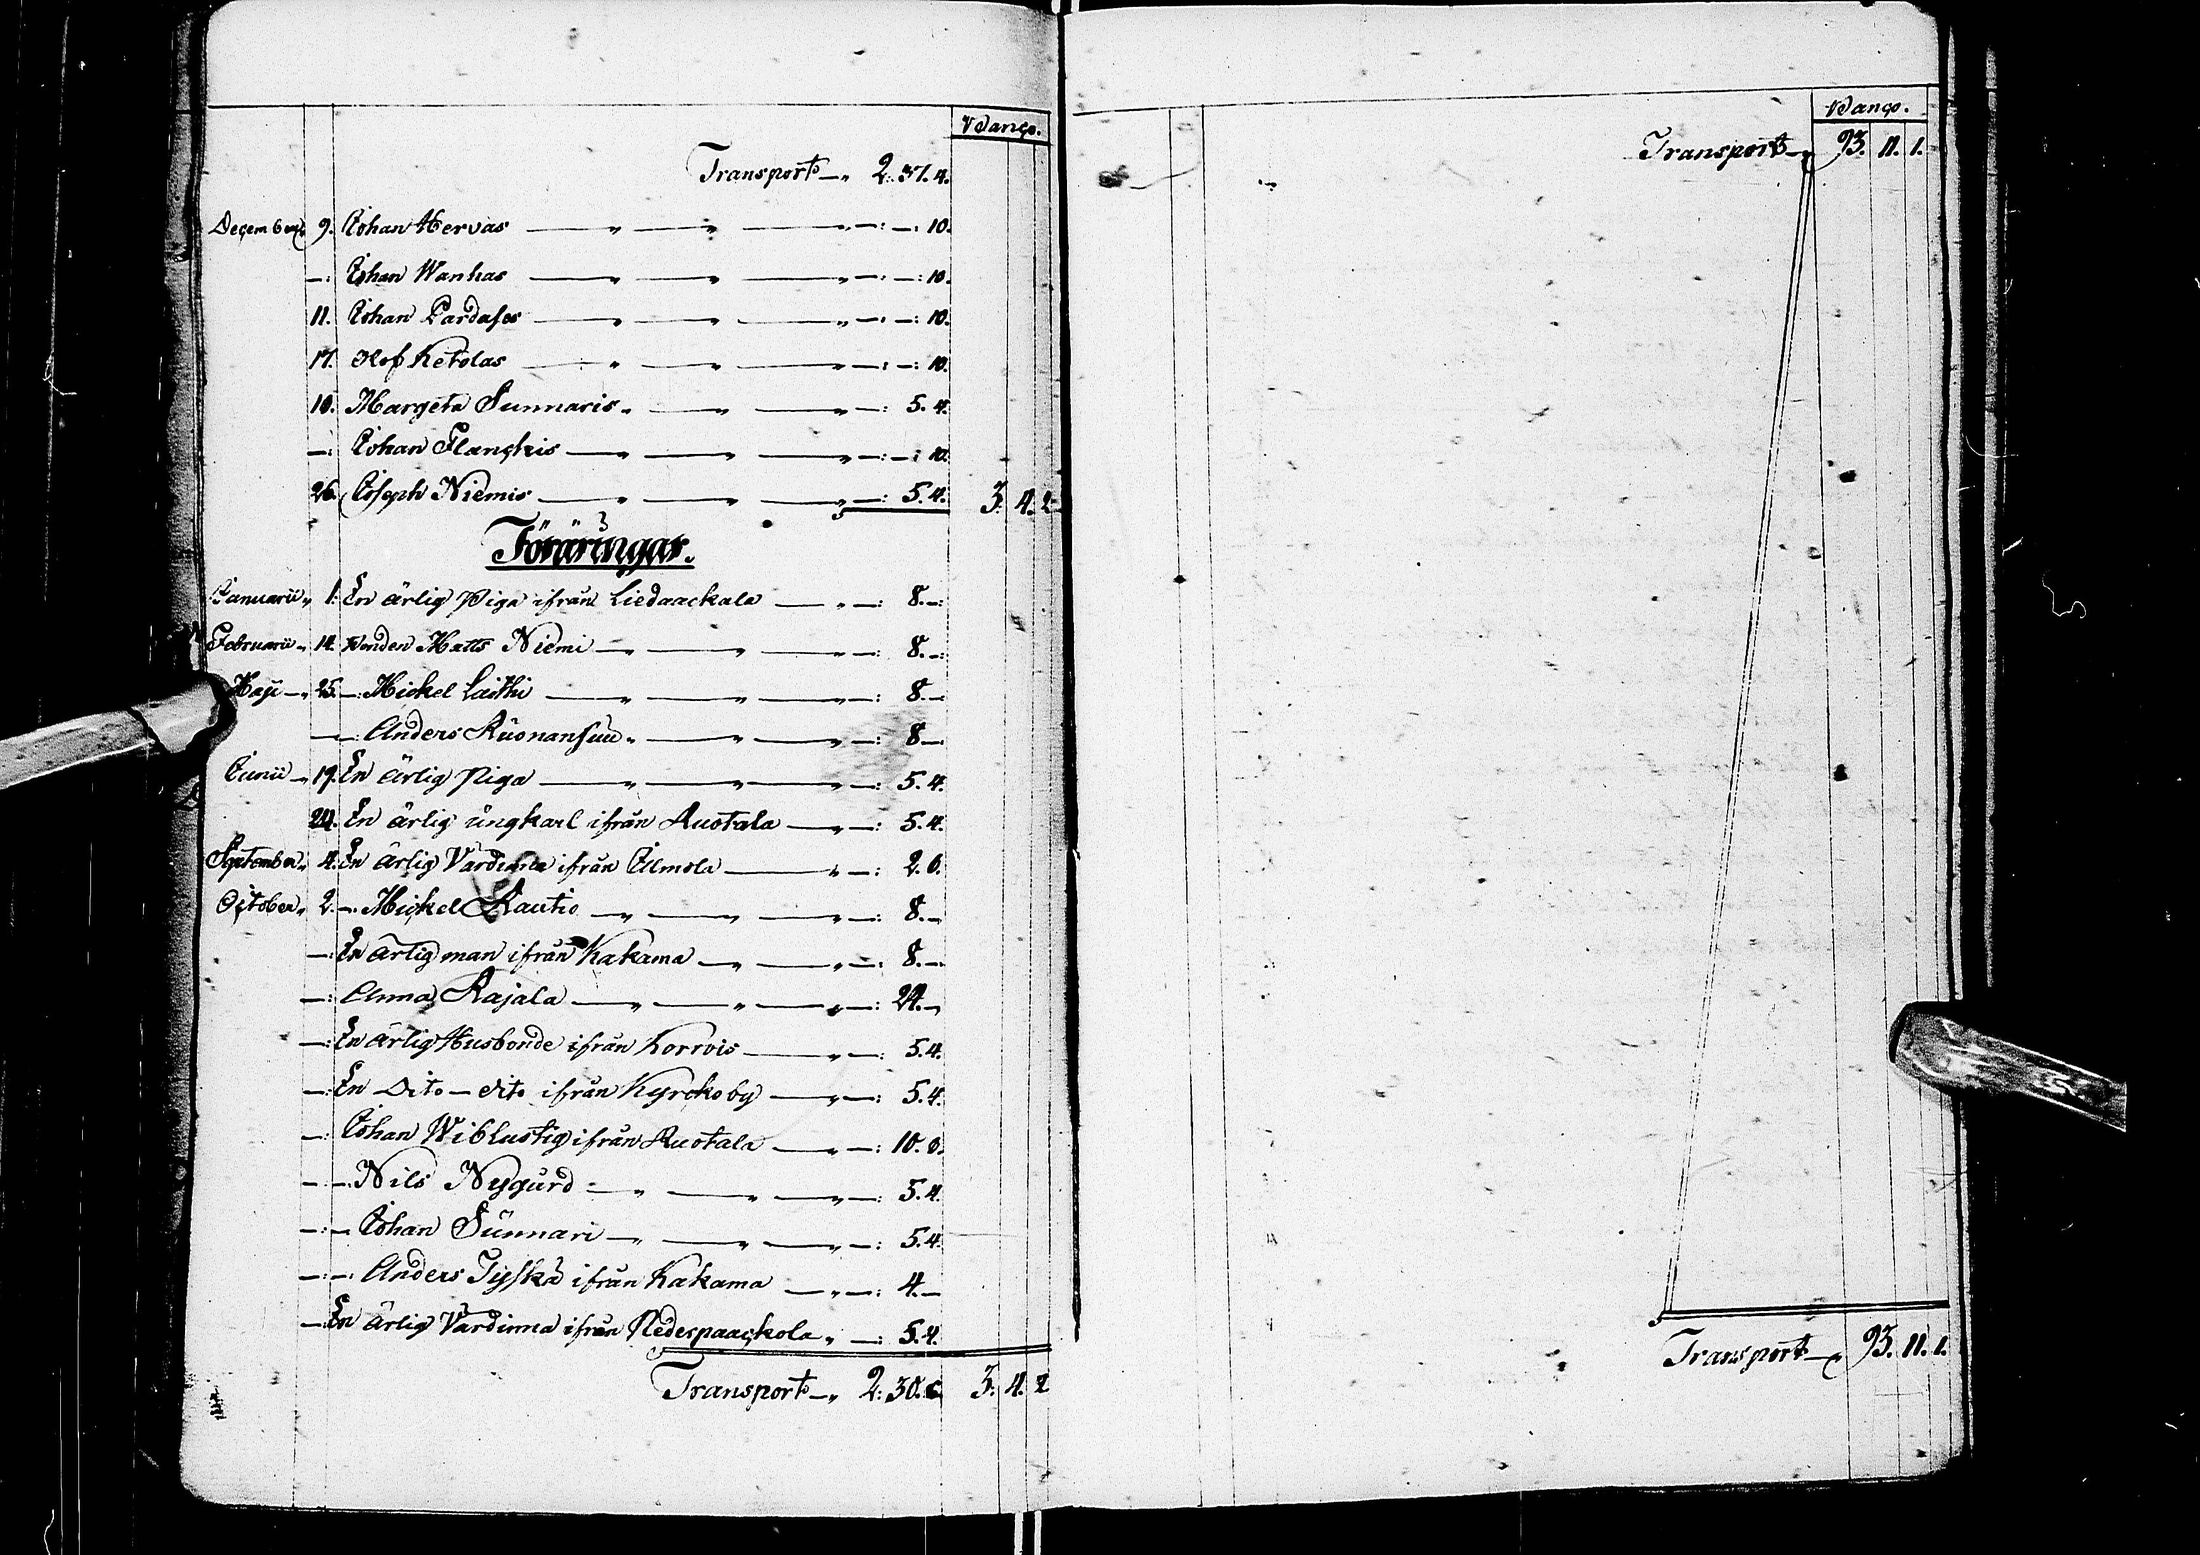 Banco.
Transport —" 2: 37. 4.
December 9. Johan Hervas — " — " — " —: —: 10.
—: Johan Wanhas — " — " — " —: —: 10.
11. Johan Pardases — " — " — " —: —: 10.
17. Olof Ketolas — " — " — " —: —: 10.
18. Margeta Sunnaris " — " — " —: 5. 4.
—: Johan Planckis — " — " — " —: —: 10.
26. Joseph Niemis — " — " — " —: 5. 4. 3. 4. 2
Föräringar.
Januarii " 1. En ärlig Piga ifrån Liedaackala — " —: 8. —:
Februarii " 14. Manden Matts Niemi — " — " — " —: 8. —:
Maji — " 25. —: Mickel Laithi — " — " — " —: 8. —
—: Anders Ruonansuu " — " — " —: 8 —:
Junii — " 19. En ärlig Piga — " — " — " —: 5. 4.
24. En ärlig ungkarl ifrån Ruotala — " —: 5. 4.
September " 4. En ärlig Värdinna ifrån Ilmola — " —: 2. 6.
October " 2. —: Mickel Rautio — " — " —: 8. —
—: En ärlig man ifrån Kakama — " — " —: 8. —
—: Anna Rajala — " — " — " —: 24. —
—: En ärlig Husbonde ifrån Korrois — " —: 5. 4.
—: En Dito — dito ifrån Kyrckoby — " —: 5. 4.
—: Johan Wiblustig ifrån Ruotala — " —: 10. 8.
— —: Nils Nygürd — " — " — " —: 5. 4.
—: — Johan Sunnari — " — " — " —: 5. 4.
—: —: Anders Tyskä ifrån Kakama — " —: 4. —
—: En ärlig Värdinna ifrån Nederpaackola " —: 5. 4.
Transport —" 2: 30. 6 3. 4. 2
Banco.
Transport —" 93. 11. 1.
Transport —" 93. 11. 1.